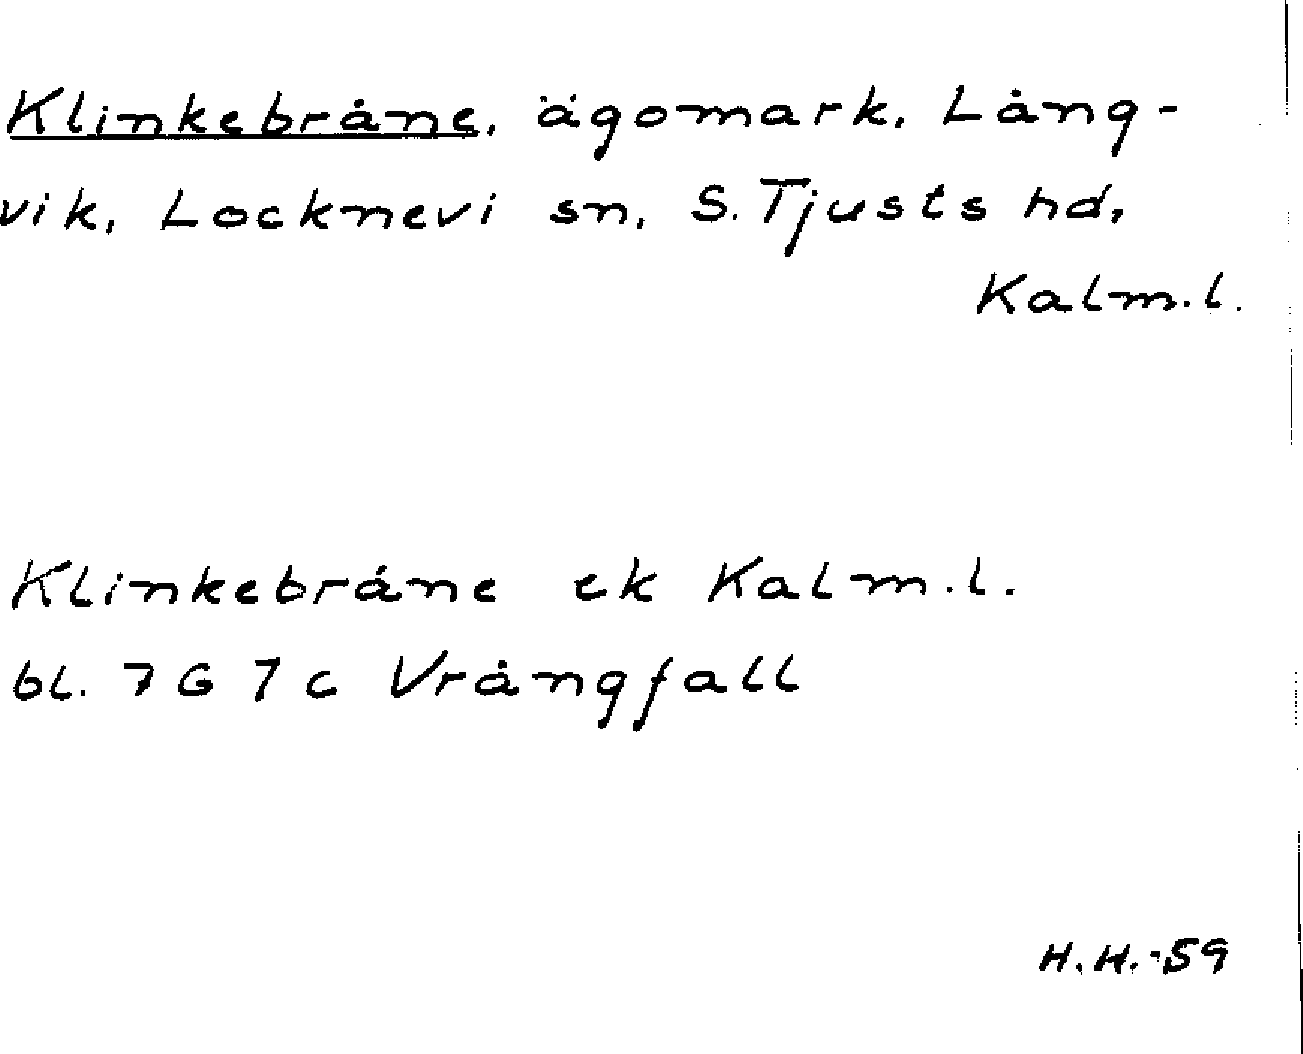 Klinkebråne, ägomark, Lång-
vik, Locknevi sn, S. Tjusts hd,
Kalm.l.
Klinkebråne ek Kalm.l.
bl. 7 G 7 c Vrångfall
H.H.-59